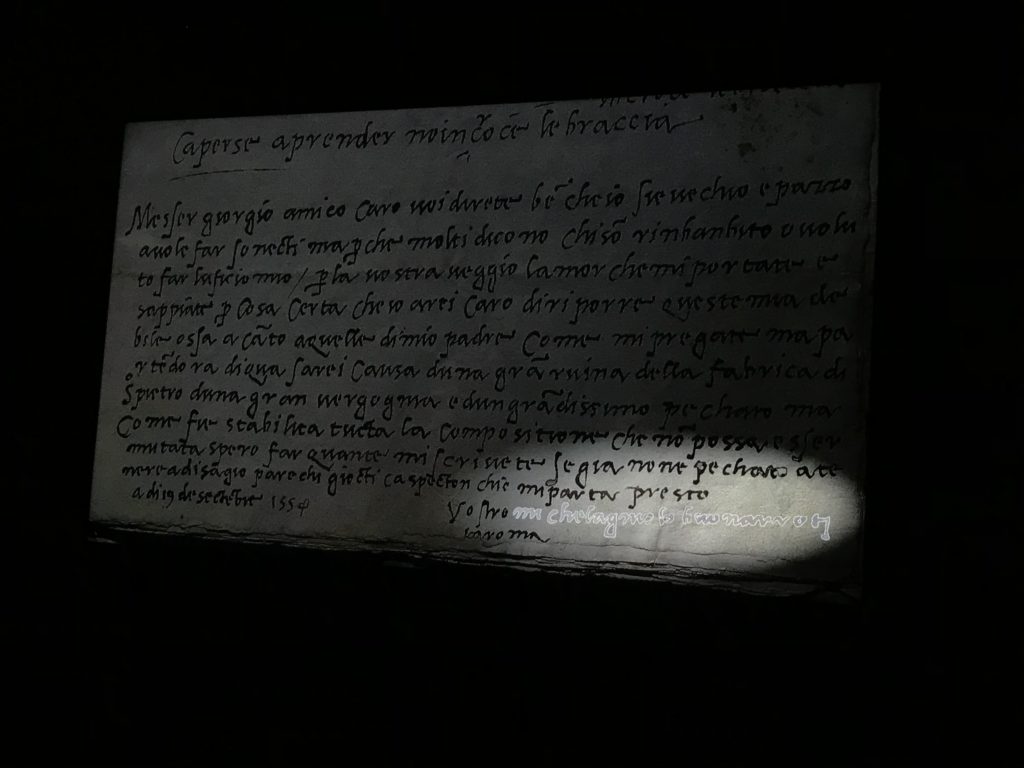 Caperse aprender noi in cro ce le braccia
Messer giorgio amico caro voi direte be che io sie vechio e pazzo
a vole far sonecti ma p che molti dicono chi so rinbanbito o volu
to far luficio mio / p la vostra veggio lamor che mi portate e
sappiate p cosa certa che io arei caro di riporre queste mia de
bile ossa a cato a quelle di mio padre come mi pregate ma pa
rtedo ra di qua sarei causa duna gra ruina della fabrica di
S pietro duna gran vergognia e dun gradissimo pechato ma
Come fie stabilita tucta la compositione che no possa esser
mutata spero far quante mi scrivete se gia none pechato a te
nere a disagio parechi giocti ca specton chie mi parta presto
a di 19 de sectebre 1554
Vostro michelagniolo buonarroti
i roma